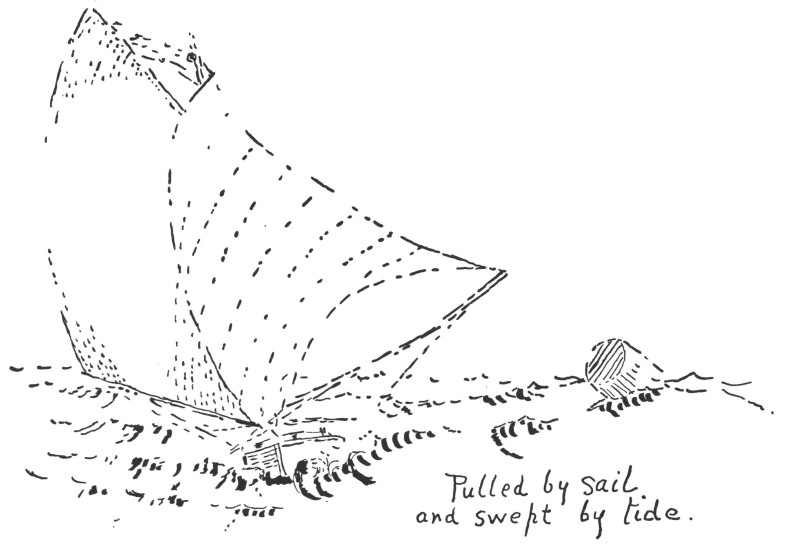 Pulled by sail
and swept by tide.